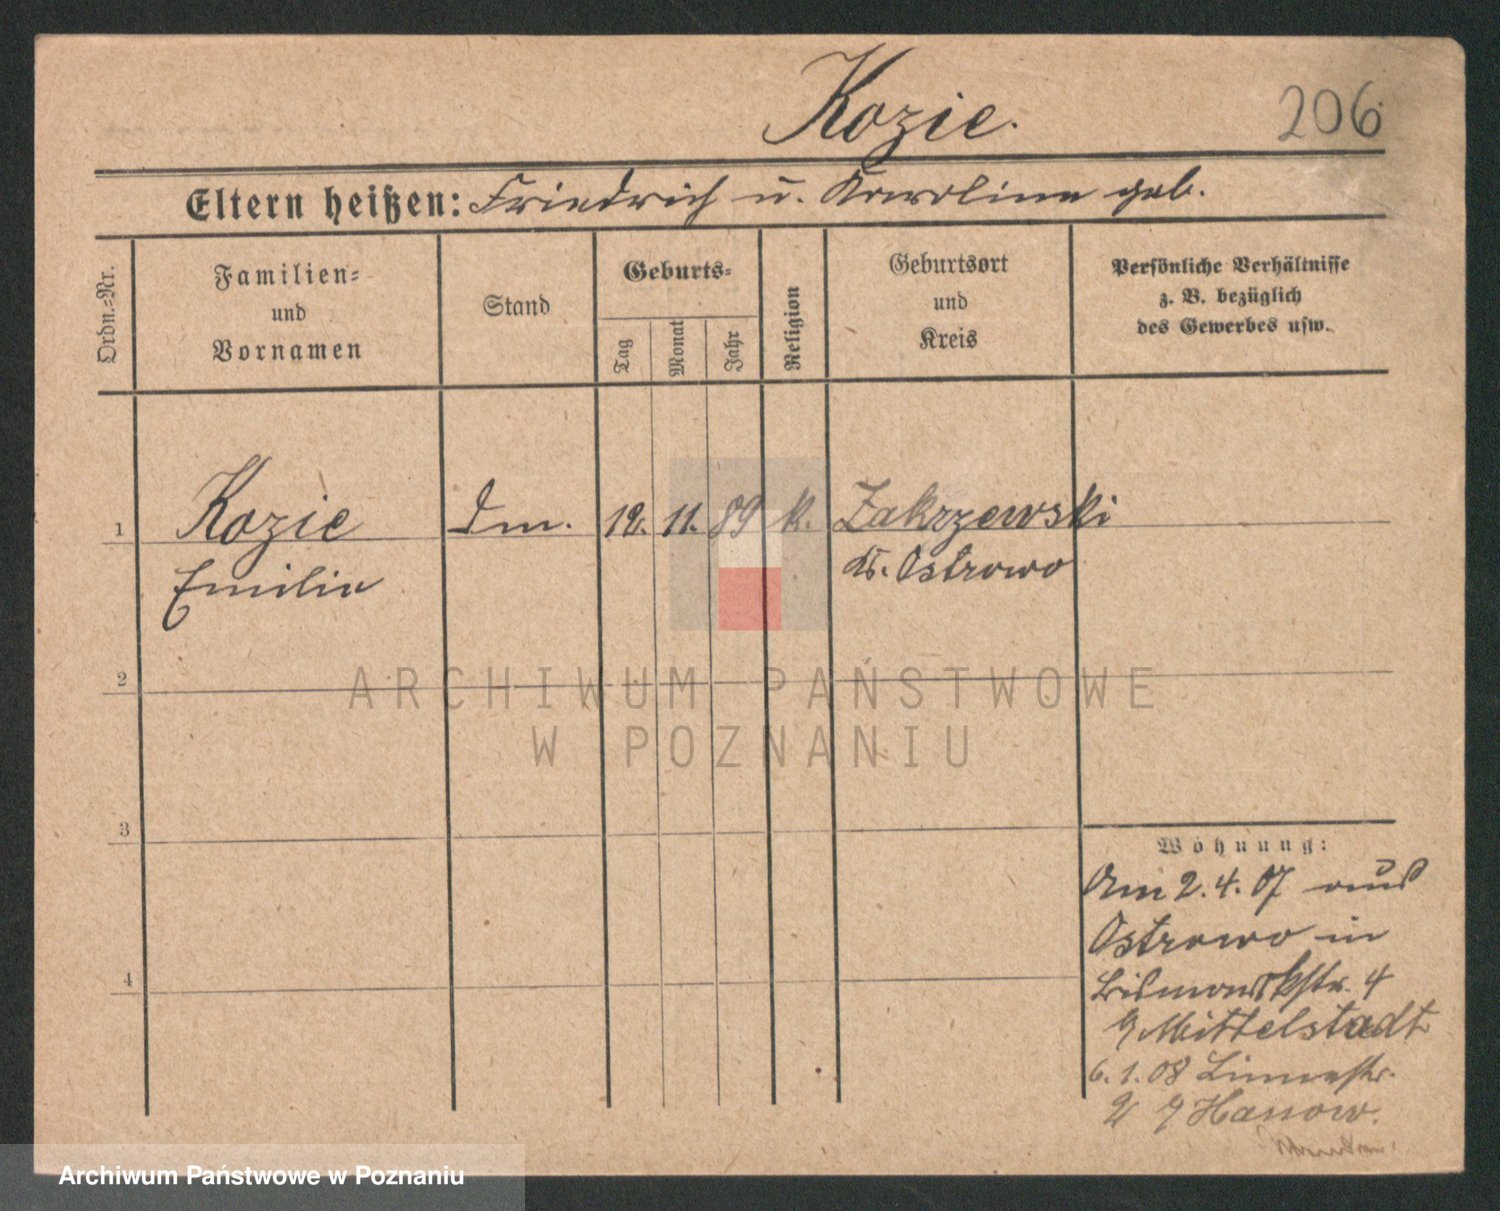 Kozie.
206
Eltern heißen: Friedrich u. Karoline geb.
Ordn.-Nr.
Familien-
und
Vornamen
Stand
Geburts-
Tag
Monat
Jahr
Religion
Geburtsort
und
Kreis
Persönliche Verhältnisse
z. B. bezüglich
des Gewerbes usw.
1 Kozie Dm. 12. 11. 89 k. Zakrzewski
Emilie Kr. Ostrowo
2
ARCHIWUM PAŃSTWOWE
W POZNANIU
3
Wohnung:
Am 2.4.07 aus
Ostrowo in
Bismarckstr. 4
Mittelstadt
4
6.1.08
2 Hanow.
Archiwum Państwowe w Poznaniu